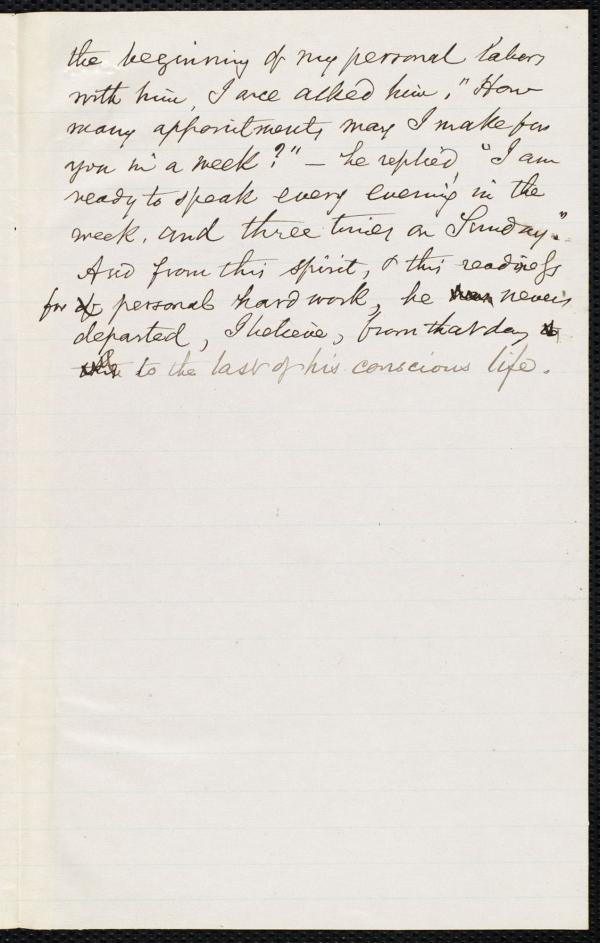 the beginning of my personal labors
with him, I once asked him, "How
many appointments may I make for
you in a week?" — he replied, "I am
ready to speak every evening in the
week, and three times on Sunday."
And from this spirit, & this readiness
for of personal hard work, he never
departed, I believe, from that day
to the last of his conscious life.